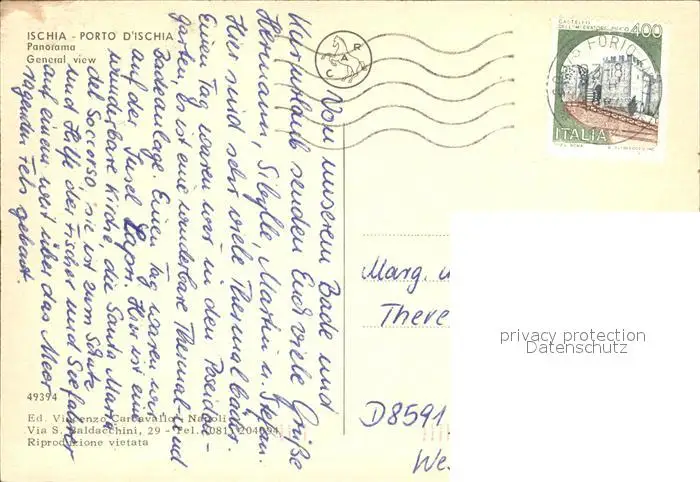 ISCHIA - PORTO D'ISCHIA
Panorama
General view
CASTELLO
400
ITALIA
FORIO
CARE
Von unserem Bade und
Kururlaub senden Euch viele Grüße
Hermann, Sibylle, Martin u. Stefan.
Hier sind sehr viele Thermalbäder.
Einen Tag waren wir in den Poseidon-
gärten. Es ist eine wunderbare Thermal- und
Badeanlage. Einen Tag waren wir
auf der Insel Capri. Hier ist eine
wunderbare Kirche, die Santa Maria
del Soccorso, sie ist zum Schutz
und Hilfe der Fischer und Seefahrer
auf einem weit über das Meer
ragenden Fels gebaut.
Marg. u
There
D8591
We
privacy protection
Datenschutz
49394
Ed. Vincenzo Carcavallo - Napoli
Via S. Baldacchini, 29 - Tel. (081) 204094
Riproduzione vietata